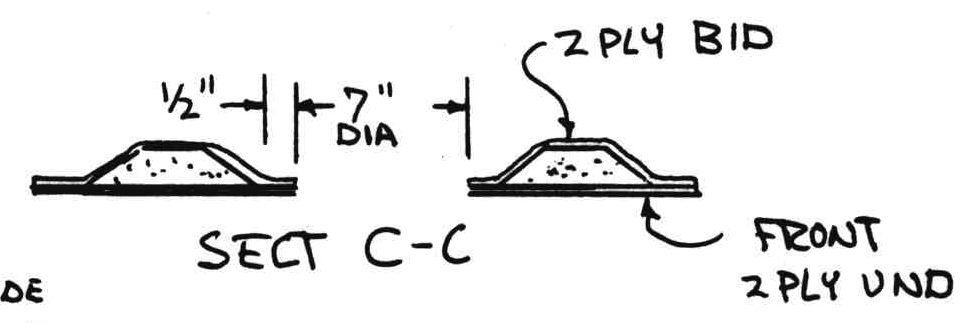 2 PLY BID
1/2" 7"
DIA
SECT C-C
FRONT
2 PLY UND
DE